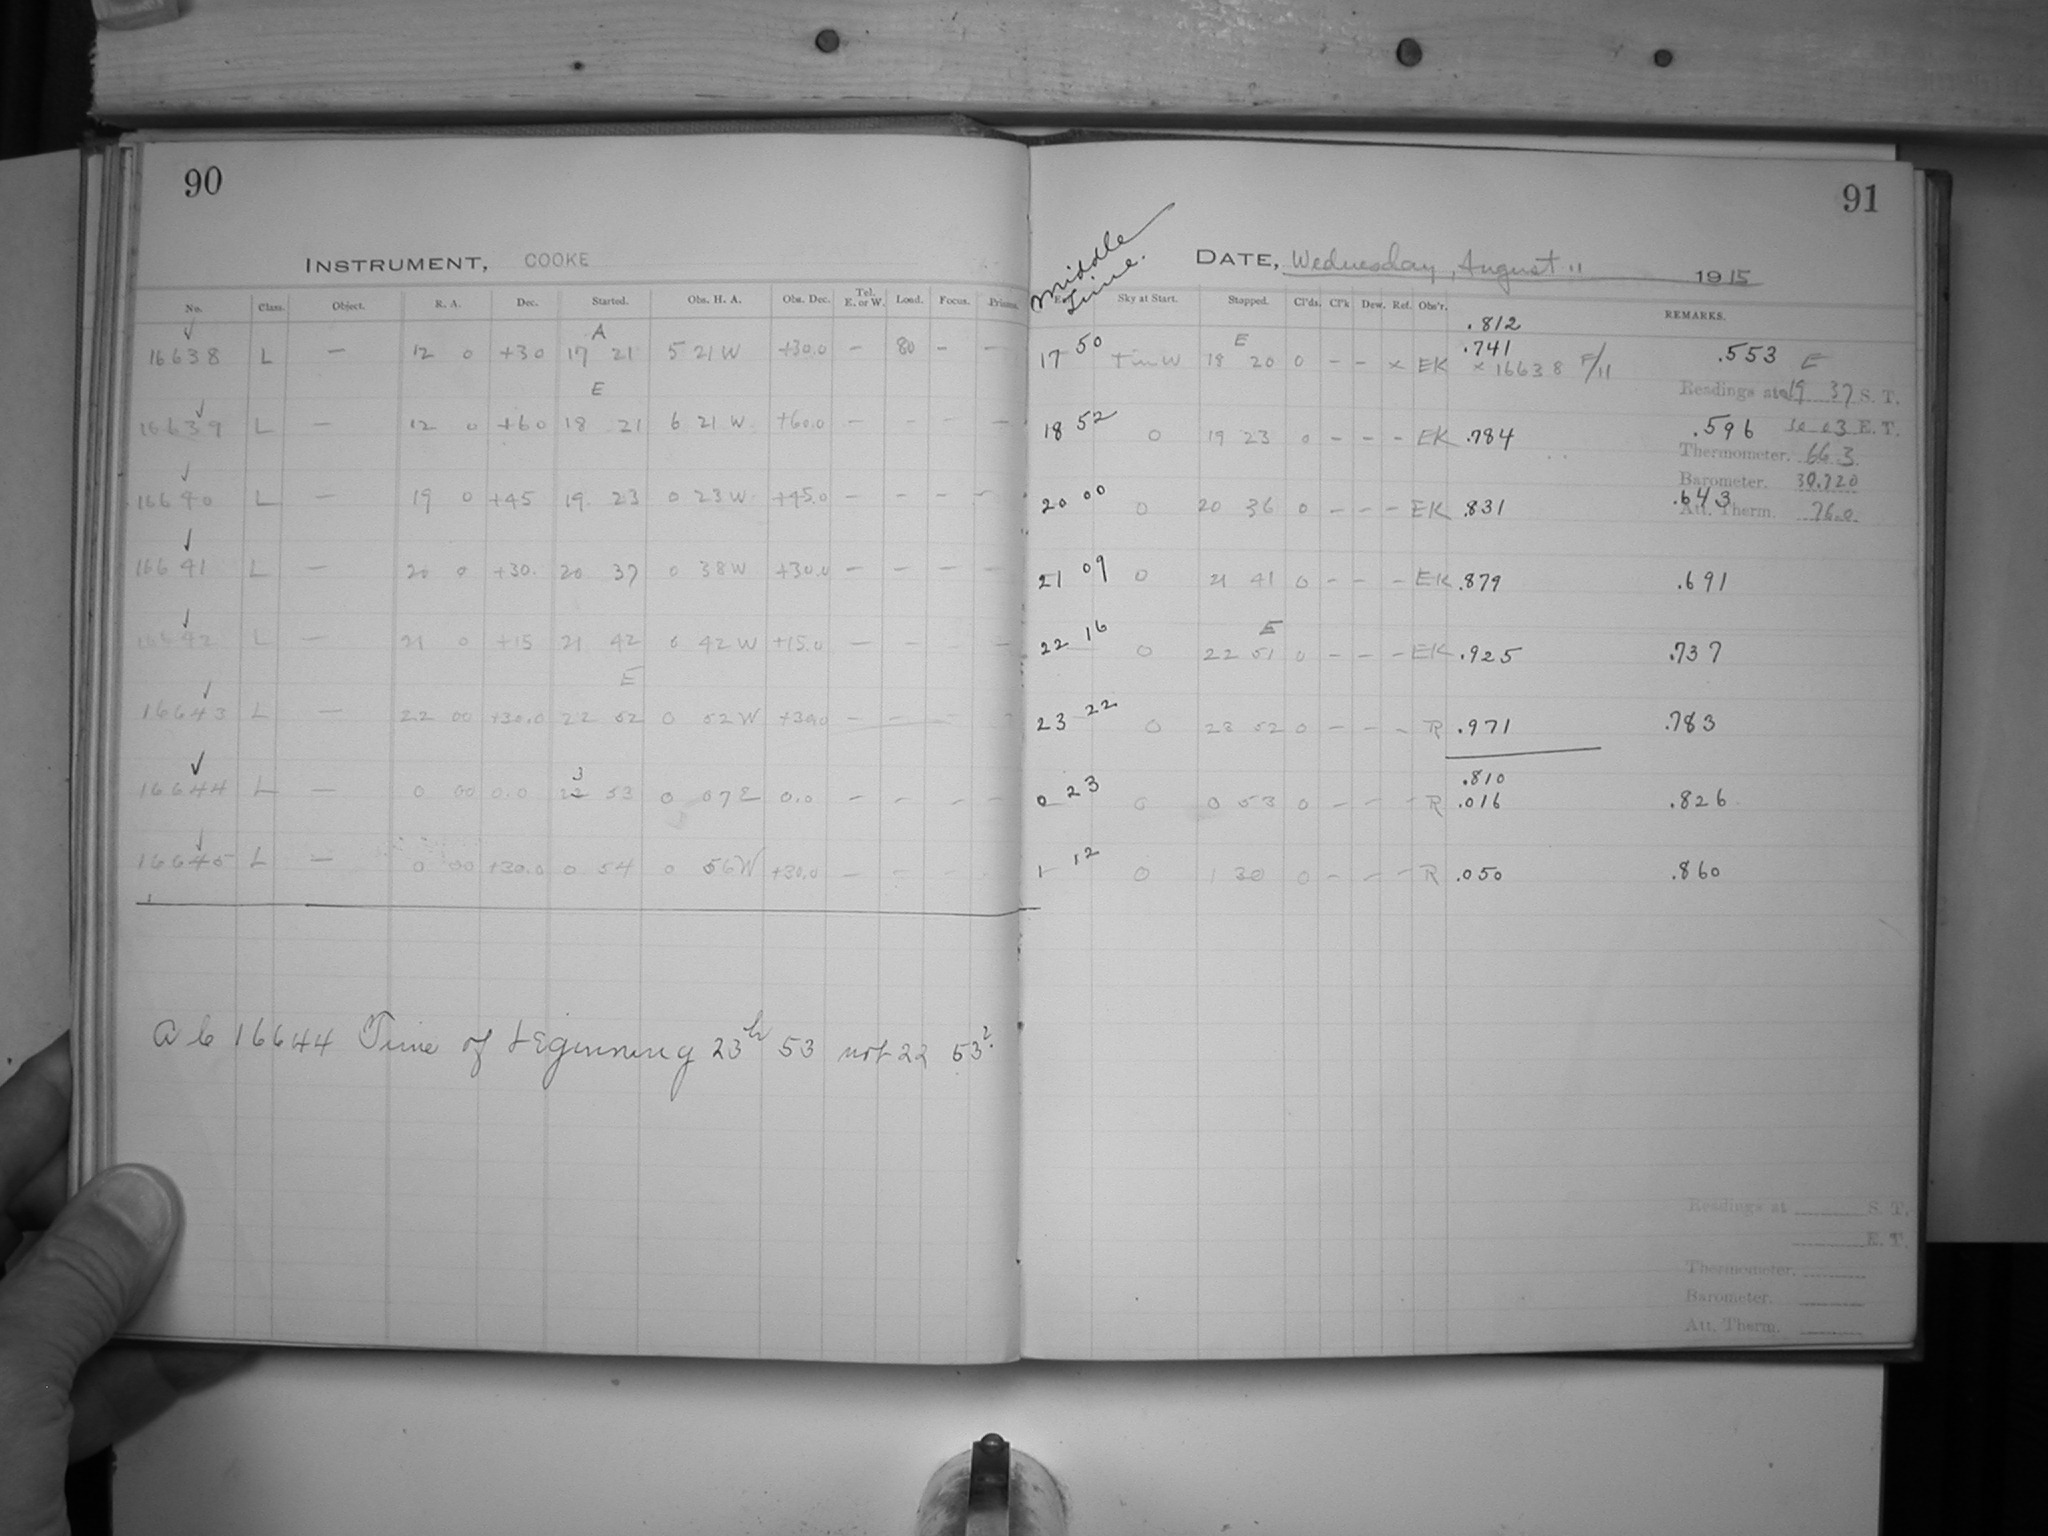 90
INSTRUMENT, COOKE
No. Class. Object. R. A. Dec. Started. Obs. H. A. Obs. Dec. Tel. E. or W. Load. Focus. Prisms.
A
16638 L — 12 0 +30 17 21 5 21 W +30.0 — 80 — —
E
16639 L — 12 0 +60 18 21 6 21 W +60.0 — - - -
16640 L — 19 0 +45 19 23 0 23 W +45.0 — - - -
16641 L — 20 0 +30. 20 37 0 38 W +30.0 — - - -
16642 L — 21 0 +15 21 42 0 42 W +15.0 — - - -
E
16643 L — 22 00 +30.0 22 52 0 52 W +30.0 — - - -
3
16644 L — 0 00 0.0 22 53 0 07 E 0.0 - - - -
16645 L — 0 00 +30.0 0 54 0 56 W +30.0 - - - -
16644 Time of beginning 23h 53 not 22 53?
91
Middle Time.
DATE, Wednesday, August 11 1915
Sky at Start. Stopped. Cl'ds. Cl'k Dew. Ref. Obs'r. REMARKS.
.812
E
.741
17 50 18 20 0 - - x EK x 16638 F/11 .553 E
Readings at 19 37 S. T.
18 52 0 19 23 0 - - - EK .784 .596 E. T.
Thermometer. 66.3
Barometer. 30.220
20 00 0 20 36 0 - - - EK .831 .643
Att. Therm. 76.0
21 09 0 21 41 0 - - - EK .879 .691
E
22 16 0 22 51 0 - - - EK .925 .737
23 22 0 23 52 0 - - - R .971 .783
.810
0 23 0 0 53 0 - - - R .016 .826
1 12 0 1 30 0 - - - R .050 .860
Readings at S. T.
E. T.
Thermometer.
Barometer.
Att. Therm.